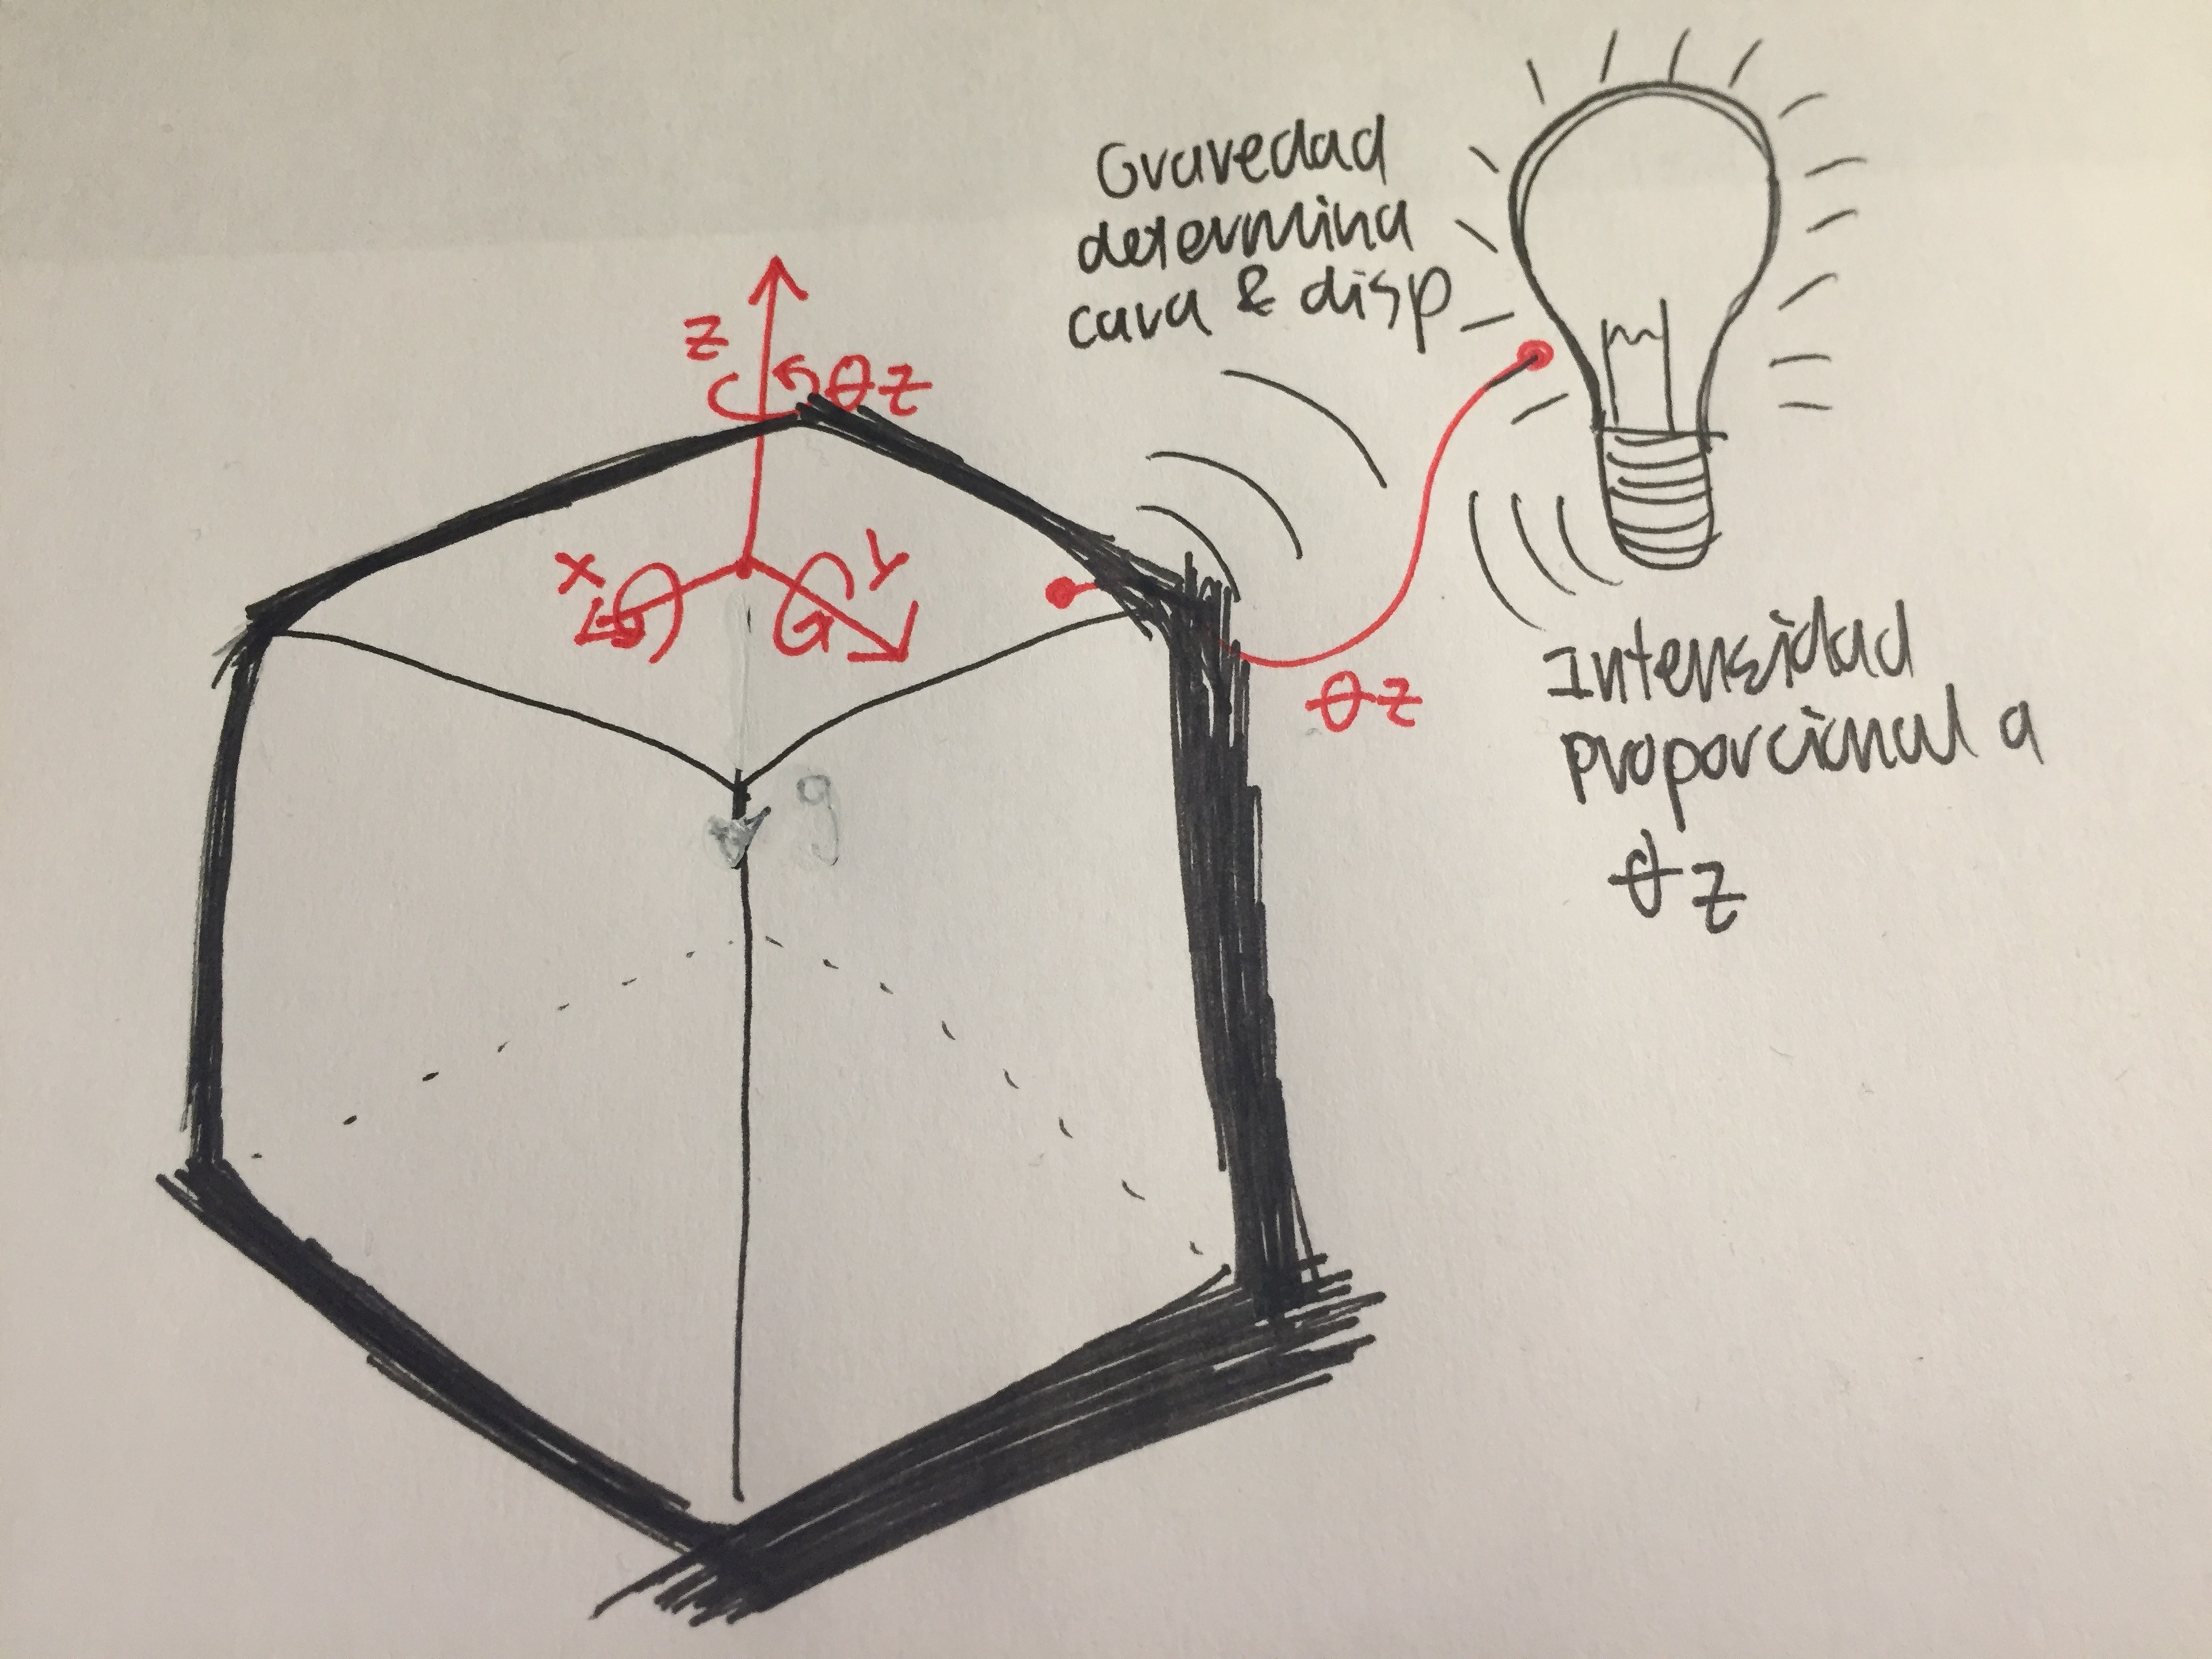 Gravedad
determina
cara & disp
z
θz
x
y
θz
g
Intensidad
proporcional a
θz